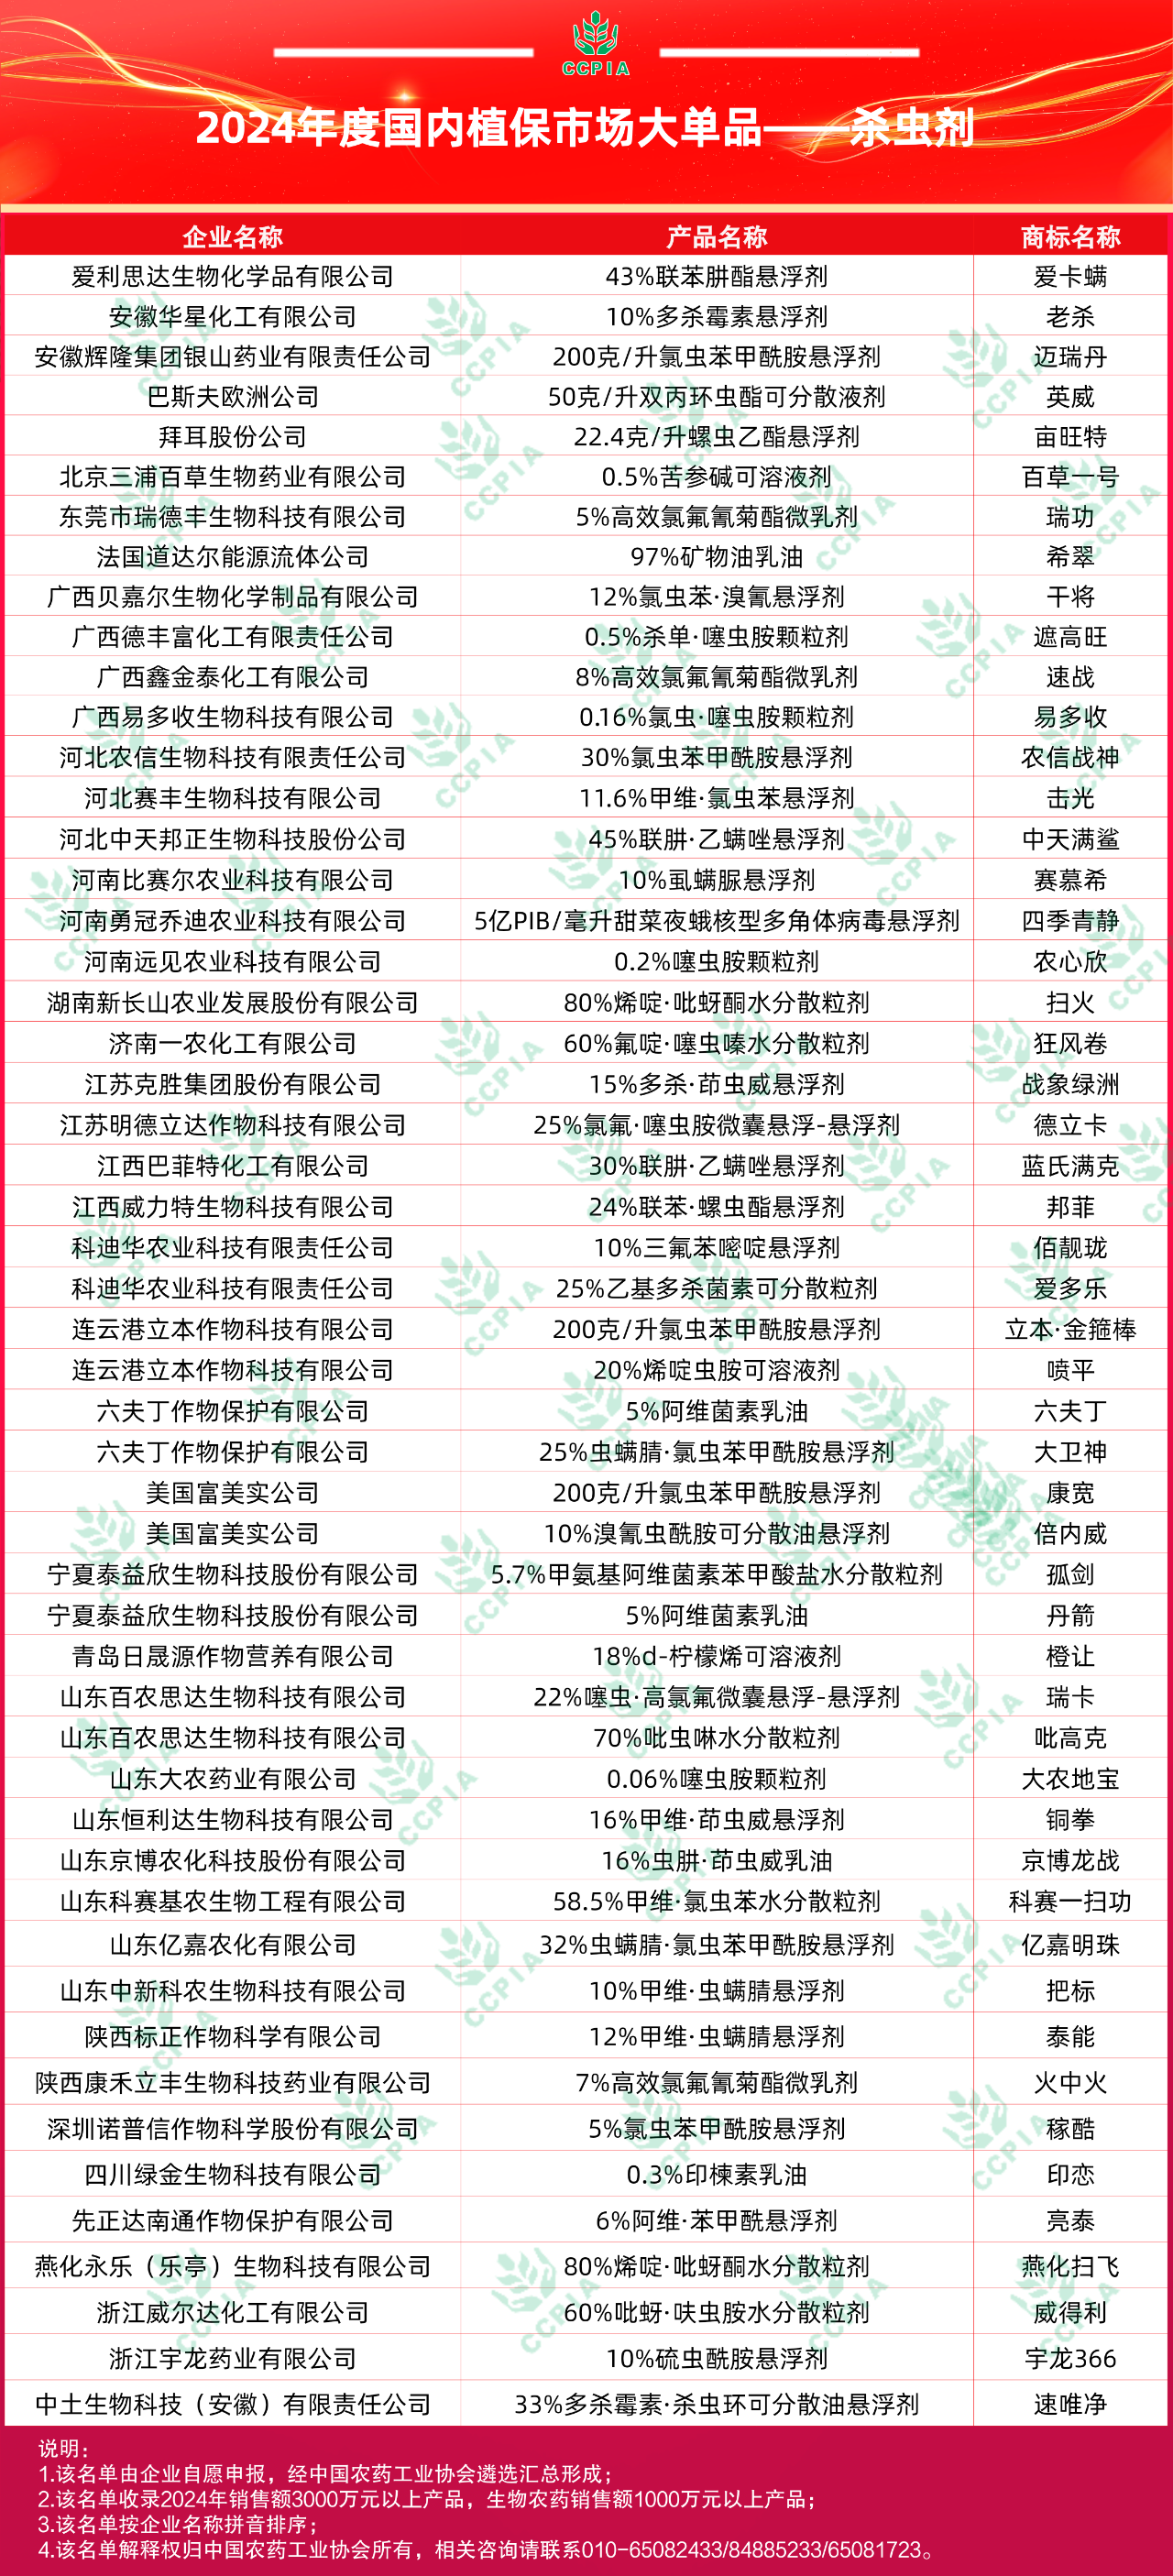 CCPIA
2024年度国内植保市场大单品——杀虫剂
企业名称 产品名称 商标名称
爱利思达生物化学品有限公司 43%联苯肼酯悬浮剂 爱卡螨
安徽华星化工有限公司 10%多杀霉素悬浮剂 老杀
安徽辉隆集团银山药业有限责任公司 200克/升氯虫苯甲酰胺悬浮剂 迈瑞丹
巴斯夫欧洲公司 50克/升双丙环虫酯可分散液剂 英威
拜耳股份公司 22.4克/升螺虫乙酯悬浮剂 亩旺特
北京三浦百草生物药业有限公司 0.5%苦参碱可溶液剂 百草一号
东莞市瑞德丰生物科技有限公司 5%高效氯氟氰菊酯微乳剂 瑞功
法国道达尔能源流体公司 97%矿物油乳油 希翠
广西贝嘉尔生物化学制品有限公司 12%氯虫苯·溴氰悬浮剂 干将
广西德丰富化工有限责任公司 0.5%杀单·噻虫胺颗粒剂 遮高旺
广西鑫金泰化工有限公司 8%高效氯氟氰菊酯微乳剂 速战
广西易多收生物科技有限公司 0.16%氯虫·噻虫胺颗粒剂 易多收
河北农信生物科技有限责任公司 30%氯虫苯甲酰胺悬浮剂 农信战神
河北赛丰生物科技有限公司 11.6%甲维·氯虫苯悬浮剂 击光
河北中天邦正生物科技股份公司 45%联肼·乙螨唑悬浮剂 中天满鲨
河南比赛尔农业科技有限公司 10%虱螨脲悬浮剂 赛慕希
河南勇冠乔迪农业科技有限公司 5亿PIB/毫升甜菜夜蛾核型多角体病毒悬浮剂 四季青静
河南远见农业科技有限公司 0.2%噻虫胺颗粒剂 农心欣
湖南新长山农业发展股份有限公司 80%烯啶·吡蚜酮水分散粒剂 扫火
济南一农化工有限公司 60%氟啶·噻虫嗪水分散粒剂 狂风卷
江苏克胜集团股份有限公司 15%多杀·茚虫威悬浮剂 战象绿洲
江苏明德立达作物科技有限公司 25%氯氟·噻虫胺微囊悬浮-悬浮剂 德立卡
江西巴菲特化工有限公司 30%联肼·乙螨唑悬浮剂 蓝氏满克
江西威力特生物科技有限公司 24%联苯·螺虫酯悬浮剂 邦菲
科迪华农业科技有限责任公司 10%三氟苯嘧啶悬浮剂 佰靓珑
科迪华农业科技有限责任公司 25%乙基多杀菌素可分散粒剂 爱多乐
连云港立本作物科技有限公司 200克/升氯虫苯甲酰胺悬浮剂 立本·金箍棒
连云港立本作物科技有限公司 20%烯啶虫胺可溶液剂 喷平
六夫丁作物保护有限公司 5%阿维菌素乳油 六夫丁
六夫丁作物保护有限公司 25%虫螨腈·氯虫苯甲酰胺悬浮剂 大卫神
美国富美实公司 200克/升氯虫苯甲酰胺悬浮剂 康宽
美国富美实公司 10%溴氰虫酰胺可分散油悬浮剂 倍内威
宁夏泰益欣生物科技股份有限公司 5.7%甲氨基阿维菌素苯甲酸盐水分散粒剂 孤剑
宁夏泰益欣生物科技股份有限公司 5%阿维菌素乳油 丹箭
青岛日晟源作物营养有限公司 18%d-柠檬烯可溶液剂 橙让
山东百农思达生物科技有限公司 22%噻虫·高氯氟微囊悬浮-悬浮剂 瑞卡
山东百农思达生物科技有限公司 70%吡虫啉水分散粒剂 吡高克
山东大农药业有限公司 0.06%噻虫胺颗粒剂 大农地宝
山东恒利达生物科技有限公司 16%甲维·茚虫威悬浮剂 铜拳
山东京博农化科技股份有限公司 16%虫肼·茚虫威乳油 京博龙战
山东科赛基农生物工程有限公司 58.5%甲维·氯虫苯水分散粒剂 科赛一扫功
山东亿嘉农化有限公司 32%虫螨腈·氯虫苯甲酰胺悬浮剂 亿嘉明珠
山东中新科农生物科技有限公司 10%甲维·虫螨腈悬浮剂 把标
陕西标正作物科学有限公司 12%甲维·虫螨腈悬浮剂 泰能
陕西康禾立丰生物科技药业有限公司 7%高效氯氟氰菊酯微乳剂 火中火
深圳诺普信作物科学股份有限公司 5%氯虫苯甲酰胺悬浮剂 稼酷
四川绿金生物科技有限公司 0.3%印楝素乳油 印恋
先正达南通作物保护有限公司 6%阿维·苯甲酰悬浮剂 亮泰
燕化永乐（乐亭）生物科技有限公司 80%烯啶·吡蚜酮水分散粒剂 燕化扫飞
浙江威尔达化工有限公司 60%吡蚜·呋虫胺水分散粒剂 威得利
浙江宇龙药业有限公司 10%硫虫酰胺悬浮剂 宇龙366
中土生物科技（安徽）有限责任公司 33%多杀霉素·杀虫环可分散油悬浮剂 速唯净
说明：
1.该名单由企业自愿申报，经中国农药工业协会遴选汇总形成；
2.该名单收录2024年销售额3000万元以上产品，生物农药销售额1000万元以上产品；
3.该名单按企业名称拼音排序；
4.该名单解释权归中国农药工业协会所有，相关咨询请联系010-65082433/84885233/65081723。